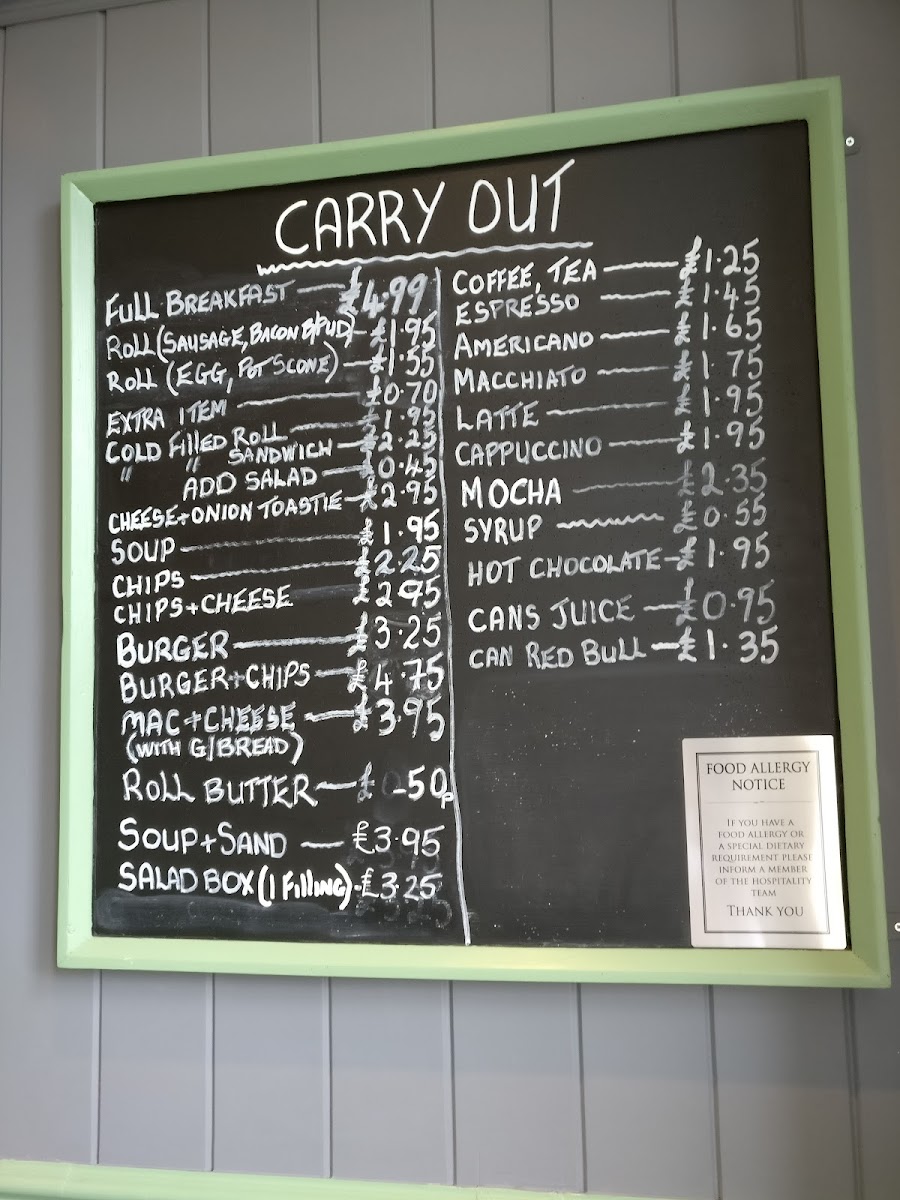 CARRY OUT
FULL BREAKFAST — £4.99
ROLL (SAUSAGE, BACON B/PUD) — £1.95
ROLL (EGG, POT SCONE) — £1.55
EXTRA ITEM — £0.70
COLD FILLED ROLL — £1.95
" " SANDWICH — £2.25
ADD SALAD — £0.45
CHEESE + ONION TOASTIE — £2.95
SOUP — £1.95
CHIPS — £2.25
CHIPS + CHEESE £2.95
BURGER — £3.25
BURGER + CHIPS — £4.75
MAC + CHEESE — £3.95
(WITH G/BREAD)
ROLL BUTTER — £ -50p
SOUP + SAND — £3.95
SALAD BOX (1 FILLING) - £3.25
COFFEE, TEA — £1.25
ESPRESSO — £1.45
AMERICANO — £1.65
MACCHIATO — £1.75
LATTE — £1.95
CAPPUCCINO — £1.95
MOCHA — £2.35
SYRUP — £0.55
HOT CHOCOLATE — £1.95
CANS JUICE — £0.95
CAN RED BULL — £1.35
FOOD ALLERGY
NOTICE
IF YOU HAVE A
FOOD ALLERGY OR
A SPECIAL DIETARY
REQUIREMENT PLEASE
INFORM A MEMBER
OF THE HOSPITALITY
TEAM
THANK YOU